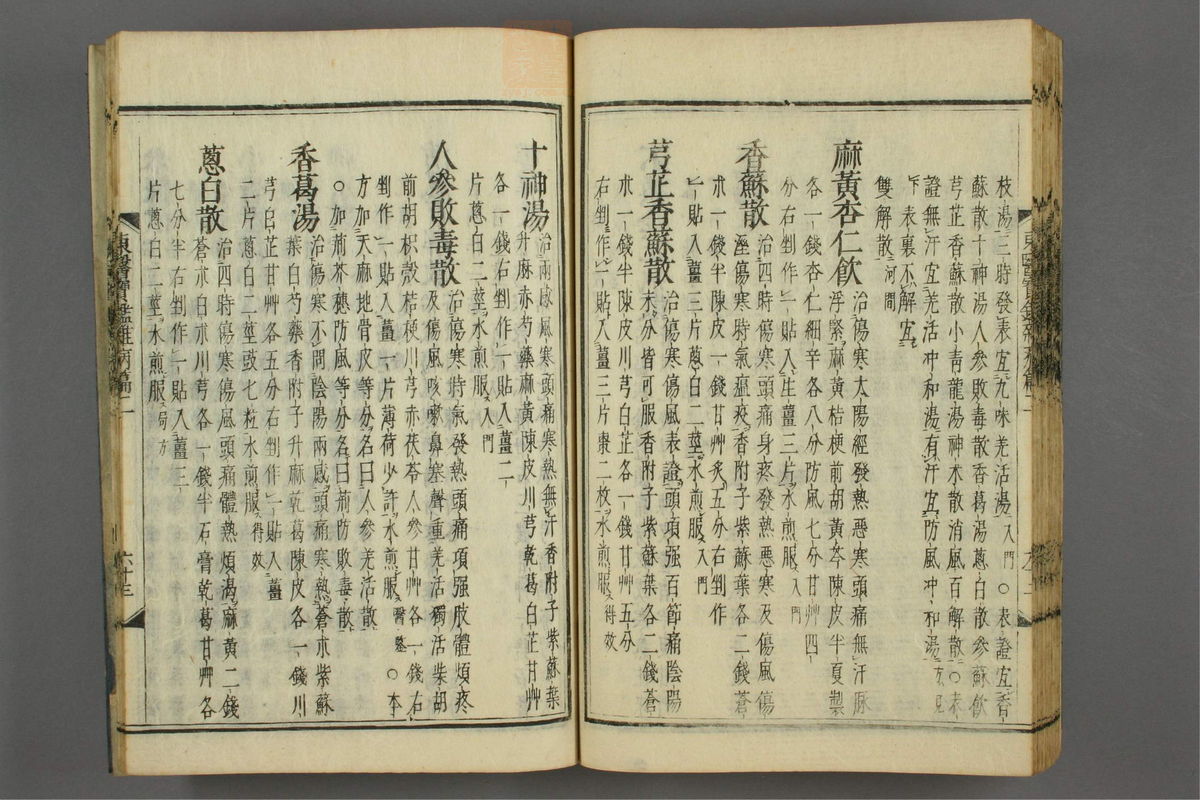 枝湯三時發表宜九味羌活湯入門○表證宜香
蘇散十神湯人參敗毒散香葛湯蔥白散參蘇飲
芎芷香蘇散小青龍湯神朮散消風百解散○表
證無汗宜羌活冲和湯有汗宜防風冲和湯
下表裏不解宜
雙解散河間
麻黃杏仁飲治傷寒太陽經發熱惡寒頭痛無汗脈
浮緊麻黃桔梗前胡黃芩陳皮半夏製
各一錢杏仁細辛各八分防風七分甘艸四
分右剉作一貼入生薑三片水煎服入門
香蘇散治四時傷寒頭痛身疼發熱惡寒及傷風傷
溼傷寒時氣瘟疫香附子紫蘇葉各二錢蒼
朮一錢半陳皮一錢甘艸炙五分右剉作
一貼入薑三片蔥白二莖水煎服入門
芎芷香蘇散治傷寒傷風表證頭項强百節痛陰陽
未分皆可服香附子紫蘇葉各二錢蒼
朮一錢半陳皮川芎白芷各一錢甘艸五分
右剉作一貼入薑三片棗二枚水煎服得效
十神湯治兩感風寒頭痛寒熱無汗香附子紫蘇葉
升麻赤芍藥麻黃陳皮川芎乾葛白芷甘艸
各一錢右剉作一貼入薑二
片蔥白二莖水煎服入門
人參敗毒散治傷寒時氣發熱頭痛項强肢體煩疼
及傷風咳嗽鼻塞聲重羌活獨活柴胡
前胡枳殼桔梗川芎赤茯苓人參甘艸各一錢右
剉作一貼入薑一片薄荷少許水煎服醫鑒○本
方加天麻地骨皮等分名曰人參羌活散
○加荊芥穗防風等分名曰荊防敗毒散
香葛湯治傷寒不問陰陽兩感頭痛寒熱蒼朮紫蘇
葉白芍藥香附子升麻乾葛陳皮各一錢川
芎白芷甘艸各五分右剉作一貼入薑
二片蔥白二莖豉七粒水煎服得效
蔥白散治四時傷寒傷風頭痛體熱煩渴麻黃二錢
蒼朮白朮川芎各一錢半石膏乾葛甘艸各
七分半右剉作一貼入薑三
片蔥白二莖水煎服局方
東醫寶鑑雜病篇二
六十三